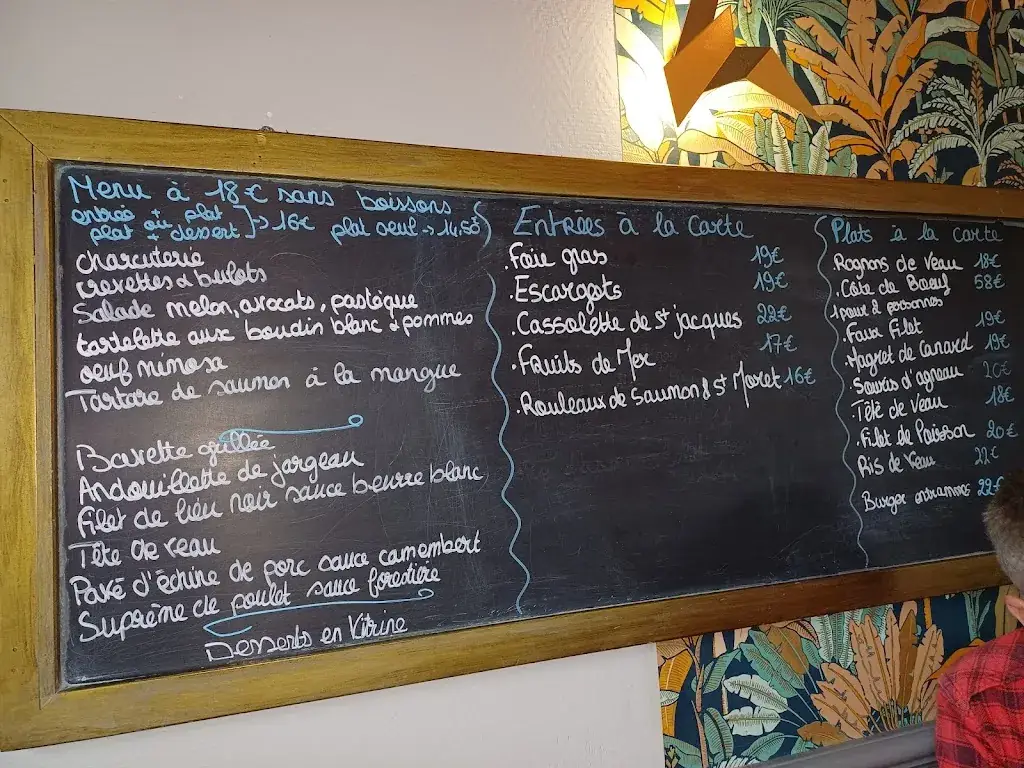 Menu à 18€ sans boissons
entrée ou plat ]→ 16€ plat seul → 14.50
plat + dessert
charcuterie
crevettes & bulots
Salade melon, avocats, pastèque
tartelette aux boudin blanc & pommes
oeuf mimosa
Tartare de saumon à la mangue
Bavette grillée
Andouillette de jargeau
Filet de lieu noir sauce beurre blanc
Tête de veau
Pavé d'échine de porc sauce camembert
Suprême de poulet sauce forestière
Desserts en Vitrine
Entrées à la carte
.Foie gras 19€
.Escargots 19€
.Cassolette de St jacques 22€
.Fruits de Mer 17€
.Rouleaux de saumon & St Moret 16€
Plats à la carte
.Rognons de veau 18€
.Côte de Boeuf 58€
1 pour 2 personnes
.Faux Filet 19€
.Magret de Canard 19€
Souris d'agneau
.Tête de Veau 18€
.Filet de Poisson 20€
Ris de Veau 22€
Burger 22€